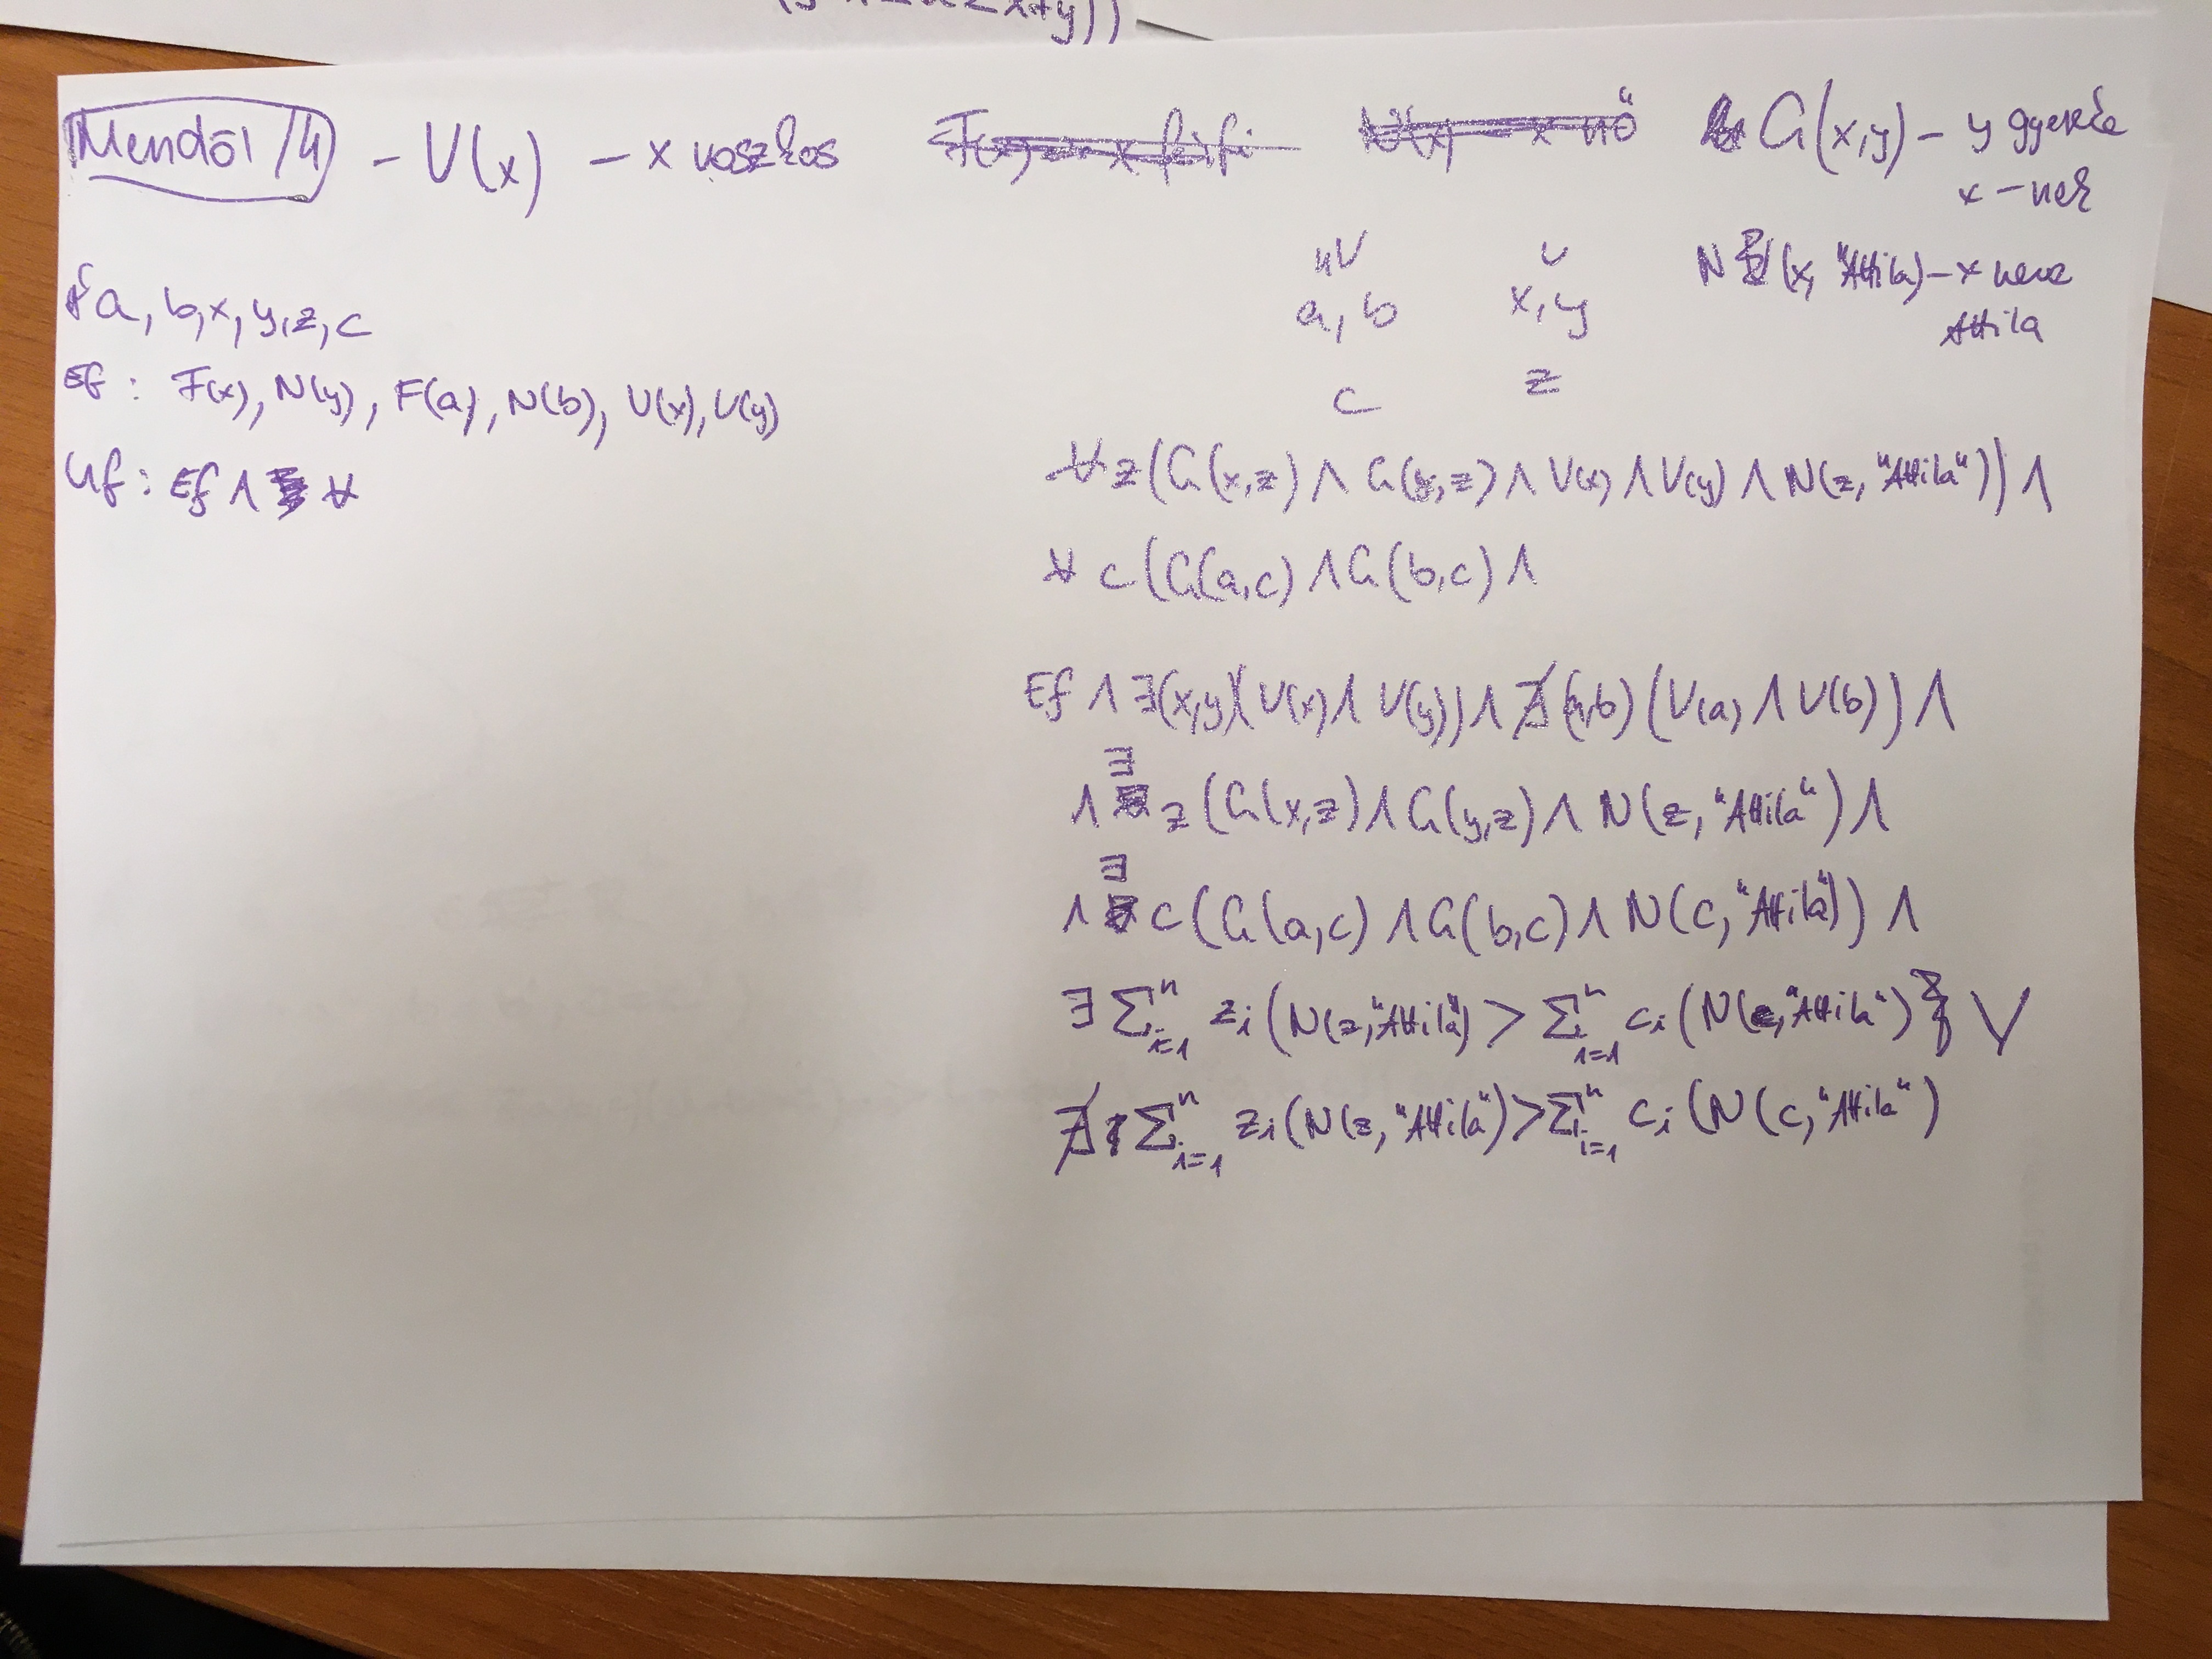 x+y))
Mendöl /4 - V(x) - x voszkos G(x,y) - y gyereke
x-nek
nV v N (x, "Attila) - x neve
a, b x, y Attila
c z
á a, b, x, y, z, c
Ef : F(x), N(y), F(a), N(b), V(x), V(y)
Uf : Ef ∧ ∀
∀ z (G(x,z) ∧ G(y,z) ∧ V(x) ∧ V(y) ∧ N(z, "Attila")) ∧
∀ c (G(a,c) ∧ G(b,c) ∧
Ef ∧ ∃(x,y)(V(x) ∧ V(y)) ∧ ∄ (a,b) (V(a) ∧ V(b)) ∧
∧ ∃ z (G(x,z) ∧ G(y,z) ∧ N(z, "Attila") ∧
∧ ∃ c (G(a,c) ∧ G(b,c) ∧ N(c, "Attila")) ∧
∃ ∑ⁿᵢ₌₁ zᵢ (N(z, "Attila") > ∑ⁿᵢ₌₁ cᵢ (N(c, "Attila") } ∨
∄ ∑ⁿᵢ₌₁ zᵢ (N(z, "Attila") > ∑ⁿᵢ₌₁ cᵢ (N(c, "Attila")